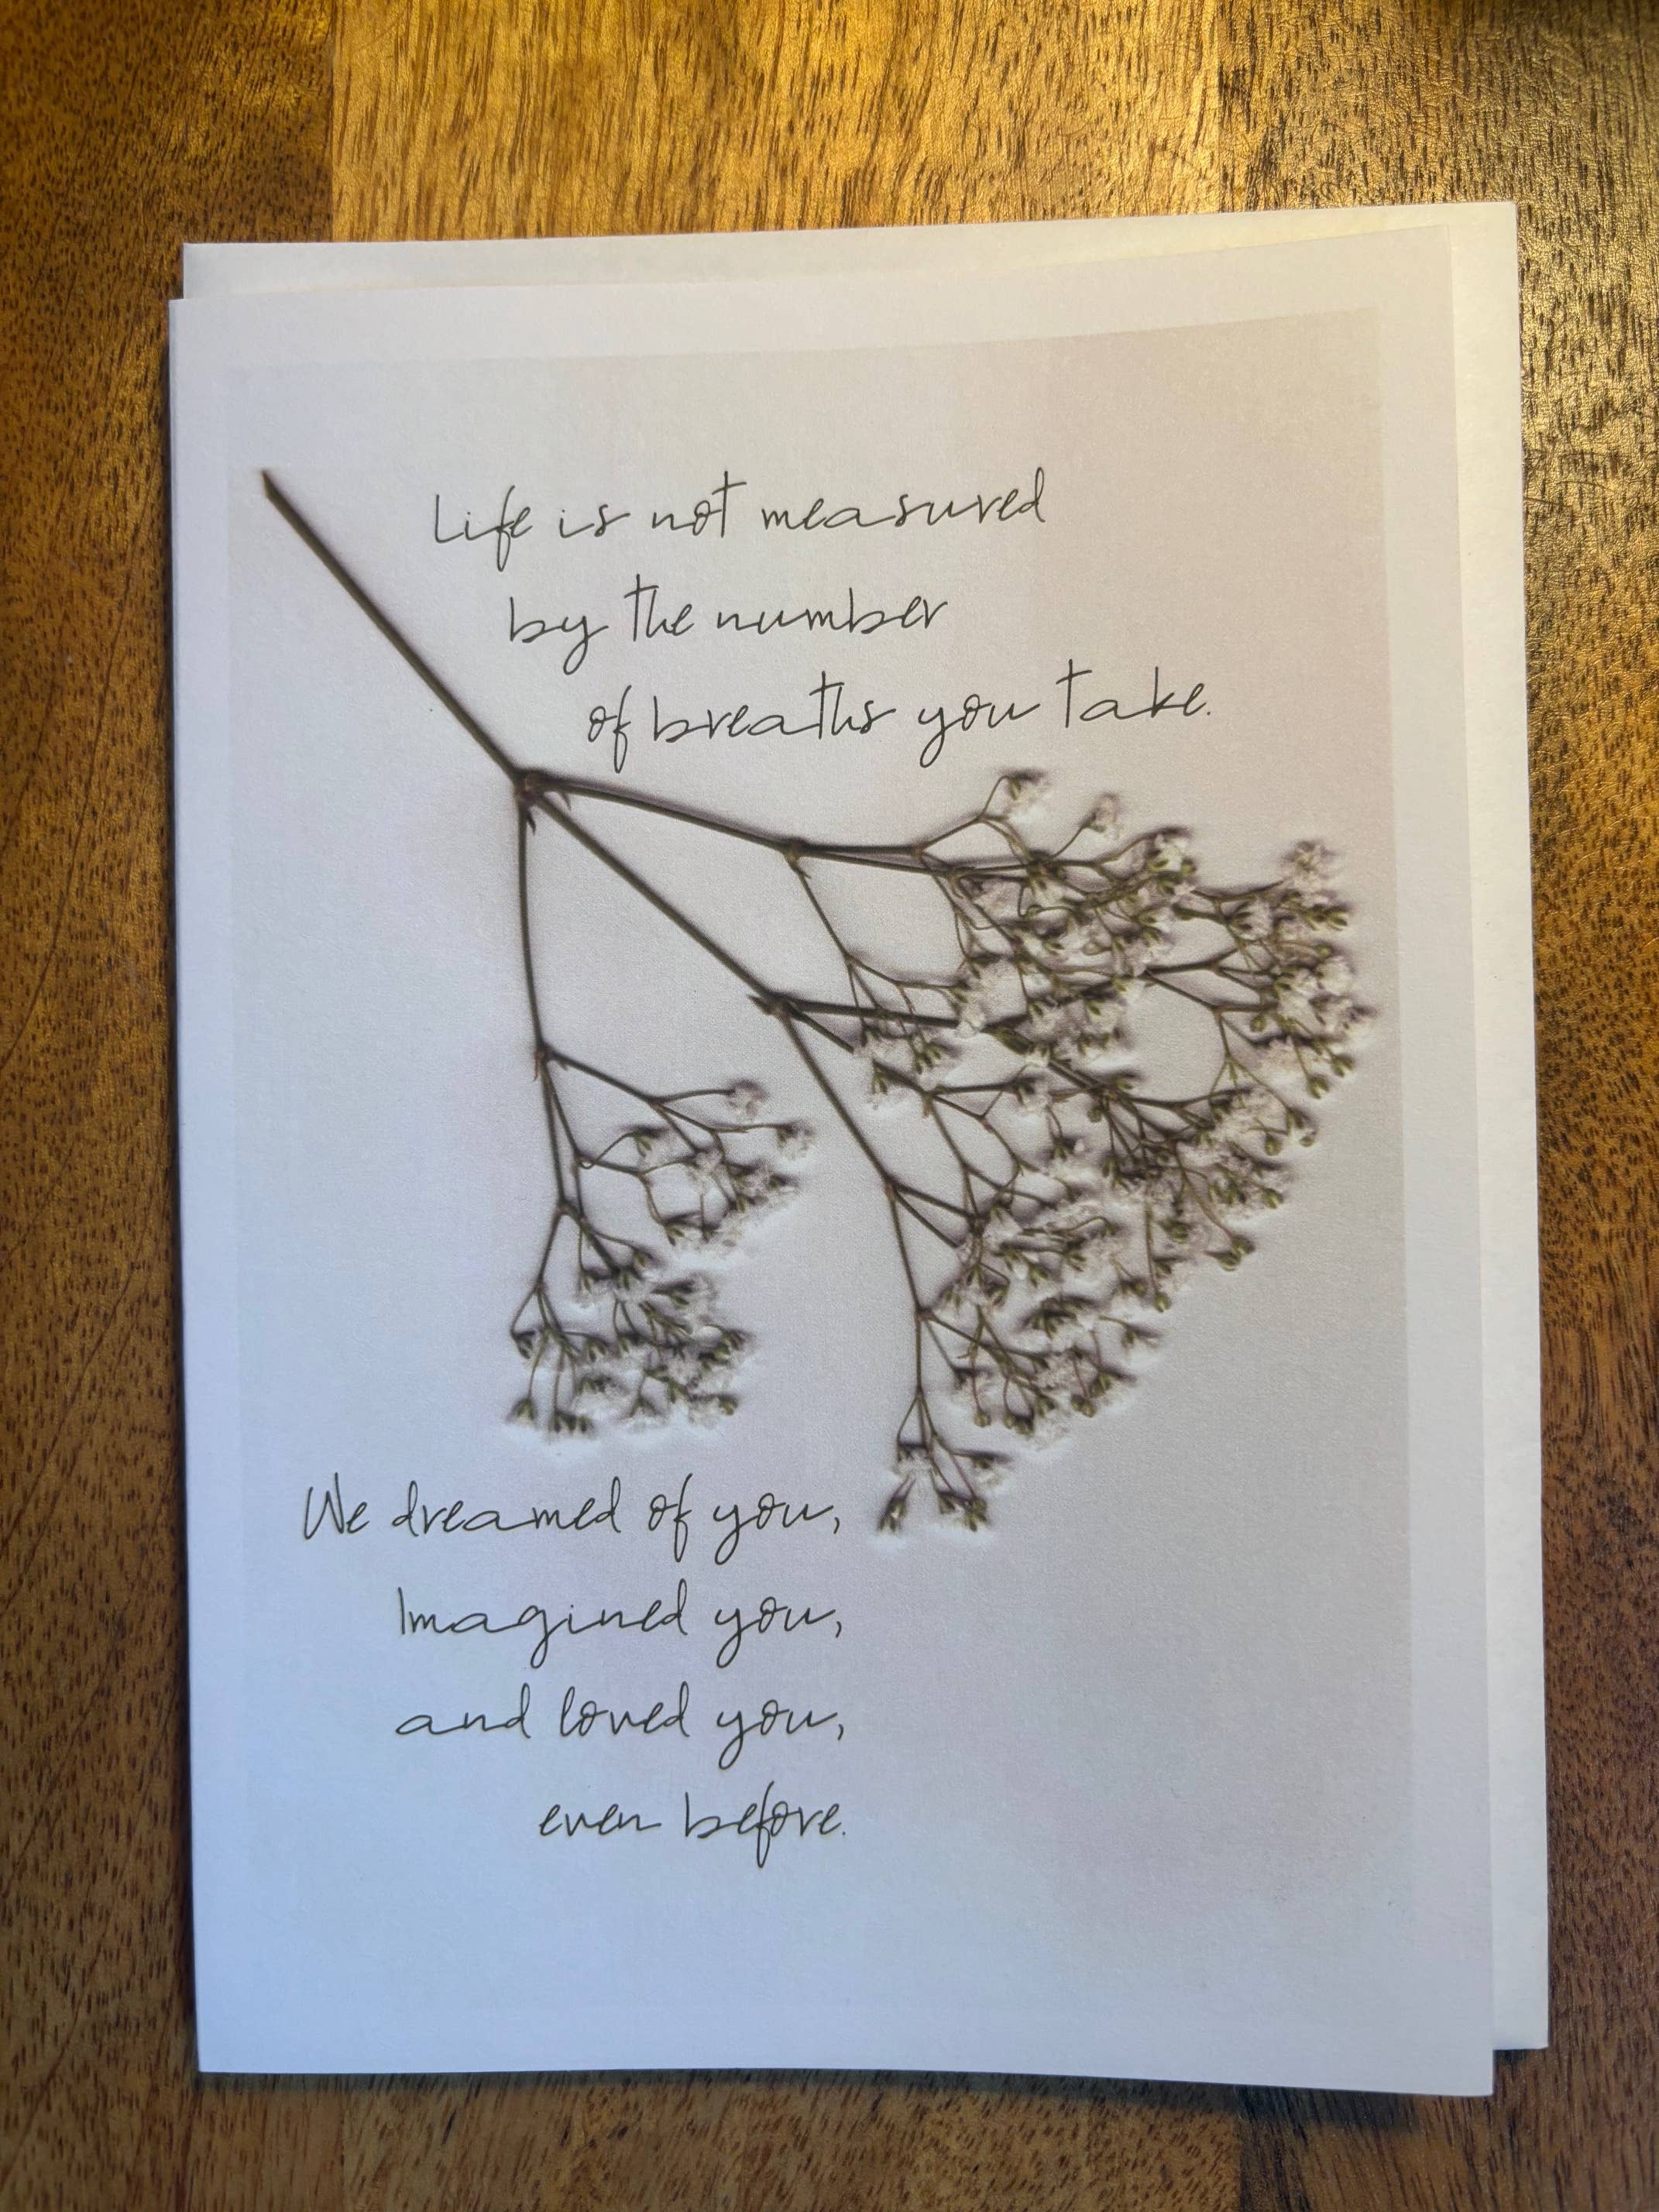 Life is not measured
by the number
of breaths you take.
We dreamed of you,
Imagined you,
and loved you,
even before.